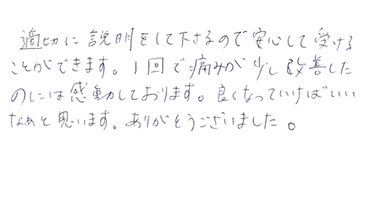 適切に説明をして下さるので安心して受ける
ことができます。1回で痛みが少し改善した
のには感動しております。良くなっていけばいい
なぁと思います。ありがとうございました。